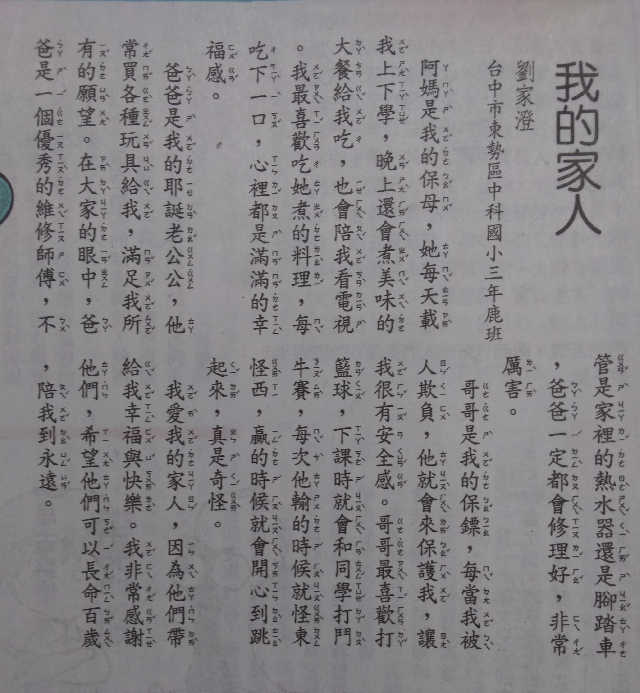 我的家人
劉家澄
台中市東勢區中科國小三年鹿班
阿媽是我的保母，她每天載
我上下學，晚上還會煮美味的
大餐給我吃，也會陪我看電視
。我最喜歡吃她煮的料理，每
吃下一口，心裡都是滿滿的幸
福感。
爸爸是我的耶誕老公公，他
常買各種玩具給我，滿足我所
有的願望。在大家的眼中，爸
爸是一個優秀的維修師傅，不
管是家裡的熱水器還是腳踏車
，爸爸一定都會修理好，非常
厲害。
哥哥是我的保鏢，每當我被
人欺負，他就會來保護我，讓
我很有安全感。哥哥最喜歡打
籃球，下課時就會和同學打鬥
牛賽，每次他輸的時候就怪東
怪西，贏的時候就會開心到跳
起來，真是奇怪。
我愛我的家人，因為他們帶
給我幸福與快樂。我非常感謝
他們，希望他們可以長命百歲
，陪我到永遠。